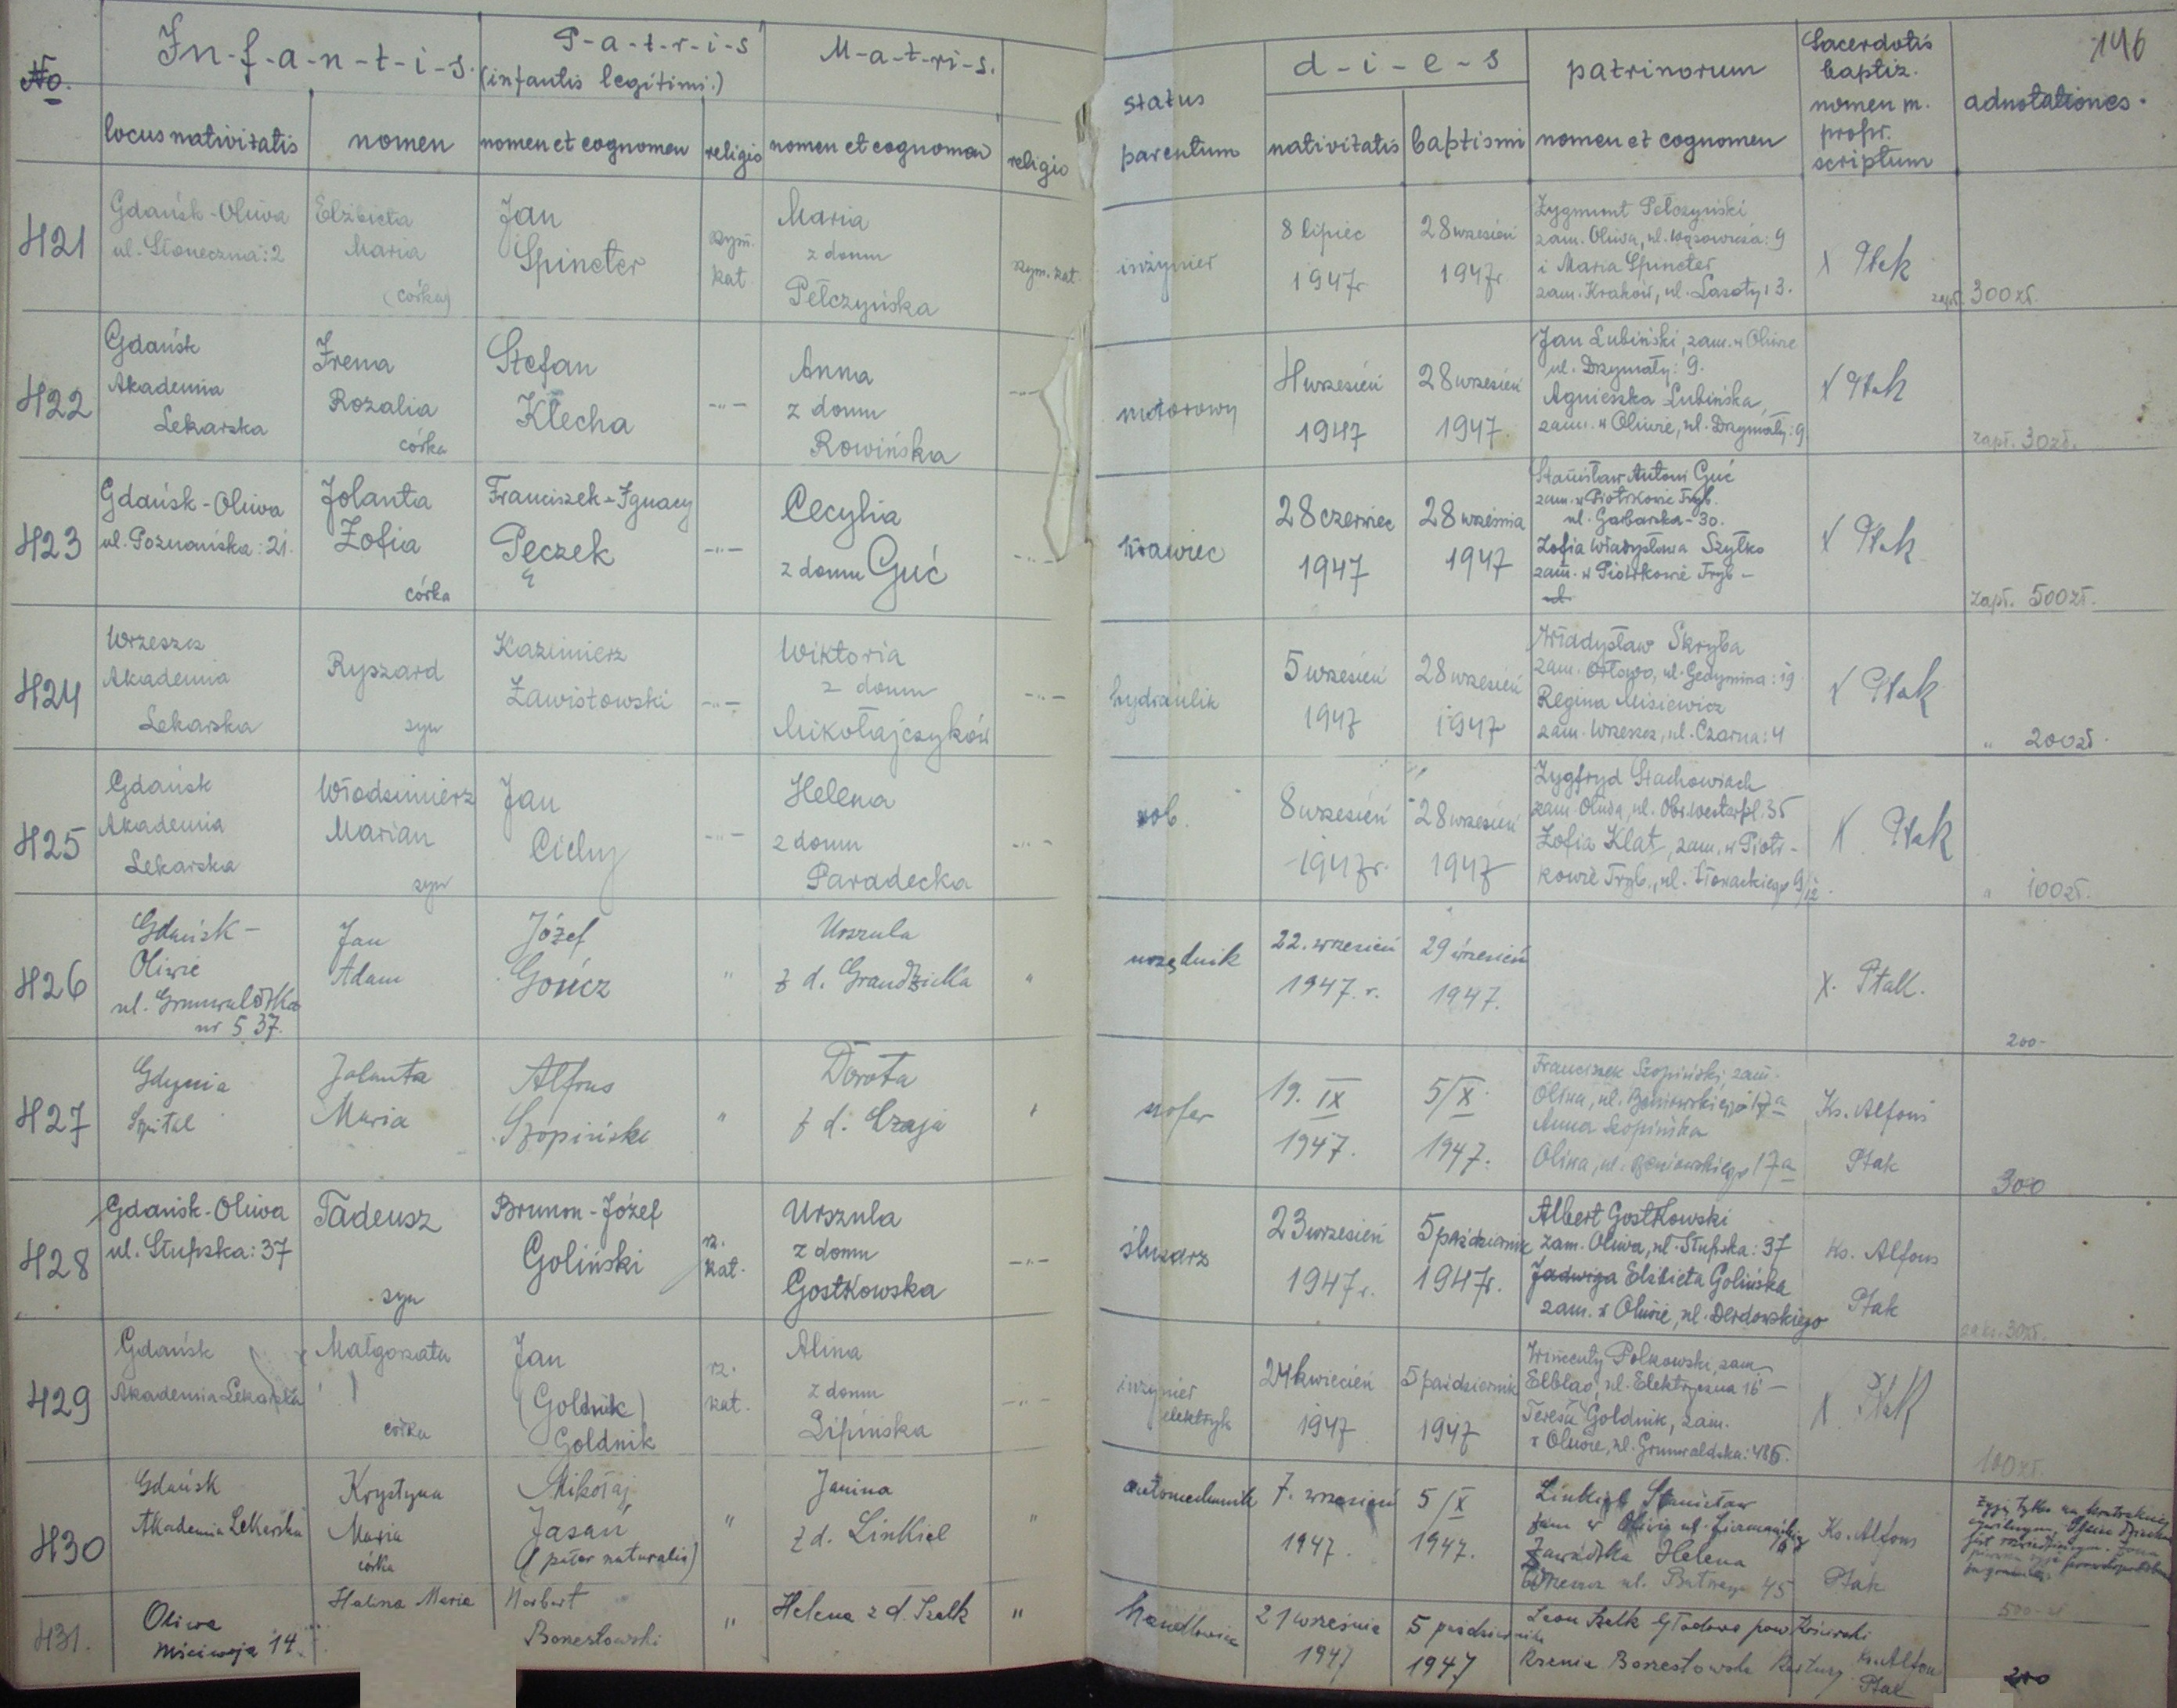 146
No.
In-f-a-n-t-i-s.
P-a-t-r-i-s
(infantis legitimi.)
M-a-t-ri-s.
status
parentum
d-i-e-s
patrinorum
nomen et cognomen
Sacerdotis
baptiz.
nomen m.
propr.
scriptum
adnotationes.
locus nativitatis
nomen
nomen et cognomen
religio
nomen et cognomen
religio
nativitatis
baptismi
421
Gdańsk-Oliwa
ul. Słoneczna: 2
Elżbieta
Maria
(córka)
Jan
Spineter
rzym.
kat.
Maria
z domu
Pełczyńska
rzym. kat.
inżynier
8 lipiec
1947r
28 wrzesień
1947r.
Zygmunt Pełczyński
zam. Oliwa, ul. Wąsowicza: 9
i Maria Spineter
zam. Kraków, ul. Lasoty: 3.
X Ptak
zapł. 300 zł.
422
Gdańsk
Akademia
Lekarska
Irena
Rozalia
córka
Stefan
Klecha
-„-
Anna
z domu
Rowińska
-„-
motorowy
4 wrzesień
1947
28 wrzesień
1947.
Jan Lubiński, zam. w Oliwie
ul. Drzymały: 9.
Agnieszka Lubińska,
zam. w Oliwie, ul. Drzymały: 9
X Ptak
zapł. 30 zł.
423
Gdańsk-Oliwa
ul. Poznańska: 21.
Jolanta
Zofia
córka
Franciszek-Ignacy
Pęczek
-„-
Cecylia
z domu Guć
-„-
krawiec
28 czerwiec
1947
28 września
1947
Stanisław Antoni Guć
zam. w Piotrkowie Tryb.
ul. Garbarska-30.
Zofia Władysława Szytko
zam. w Piotrkowie Tryb-
ul.
X Ptak
zapł. 500 zł.
424
Wrzeszcz
Akademia
Lekarska
Ryszard
syn
Kazimierz
Zawistowski
-„-
Wiktoria
z domu
Mikołajczyków
-„-
hydraulik
5 wrzesień
1947
28 wrzesień
1947
Władysław Skryba
zam. Orłowo, ul. Gedymina: 19
Regina Misiewicz
zam. Wrzeszcz, ul. Czarna: 4
X Ptak
„ 200 zł.
425
Gdańsk
Akademia
Lekarska
Włodzimierz
Marian
syn
Jan
Cichy
-„-
Helena
z domu
Paradecka
-„-
rob.
8 wrzesień
1947r.
28 wrzesień
1947
Zygfryd Stachowiach
zam. Oliwa, ul. Obr. Westerpl. 35
Zofia Klat, zam. w Piotr-
kowie Tryb., ul. Słowackiego 9/12.
X Ptak
„ 100 zł.
426
Gdańsk-
Oliwie
ul. Grunwaldzka
nr 537.
Jan
Adam
Józef
Gończ
"
Urszula
z d. Grandzicka
"
urzędnik
22. wrzesień
1947. r.
29 wrzesień
1947.
X. Ptak.
200-
427
Gdynia
Szpital
Jolanta
Maria
Alfons
Szopiński
"
Dorota
z d. Czaja
"
szofer
19. IX
1947.
5/X.
1947.
Franciszek Szopiński, zam.
Oliwa, ul. Beniowskiego 17a
Anna Szopińska
Oliwa, ul. Beniowskiego 17a
Ks. Alfons
Ptak
300
428
Gdańsk-Oliwa
ul. Słupska: 37
Tadeusz
syn
Brunon-Józef
Goliński
rz.
kat.
Urszula
z domu
Gostkowska
-„-
ślusarz
23 wrzesień
1947r.
5 październik
1947r.
Albert Gostkowski
zam. Oliwa, ul. Słupska: 37
Jadwiga Elżbieta Golińska
zam. w Oliwie, ul. Derdowskiego
Ks. Alfons
Ptak
30 zł.
429
Gdańsk
Akademia Lekarska
Małgorzata
córka
Jan
(Goldnik)
Goldnik
rz.
kat.
Alina
z domu
Lipińska
-„-
inżynier
elektryk
24 kwiecień
1947
5 październik
1947
Wincenty Polkowski, zam.
Elbląg, ul. Elektryczna 16-
Teresa Goldnik, zam.
w Oliwie, ul. Grunwaldzka: 486.
X Ptak
100 zł.
430
Gdańsk
Akademia Lekarska
Krystyna
Maria
córka
Mikołaj
Jasan
(pater naturalis)
"
Janina
z d. Linkiel
"
automechanik
7. wrzesień
1947.
5/X
1947.
Linkiel Stanisław
zam w Oliwie ul.
Zawadzka Helena
Wrzeszcz ul. Batorego 45
Ks. Alfons
Ptak
Żyją tylko na kontrakcie
cywilnym. Ojciec dziecka
jest rozwiedzionym. Żona
pierwsza żyje prawdopodobnie
za granicą.
500 zł
431.
Oliwa
Mściwoja 14.
Halina Maria
Norbert
Borzestowski
"
Helena z d. Szalk
"
handlowiec
21 września
1947
5 październik
1947
Leon Szalk Głodowo pow. Kościerski
Ksenia Borzestowska Kartuzy
Ks. Alfons
Ptak
200